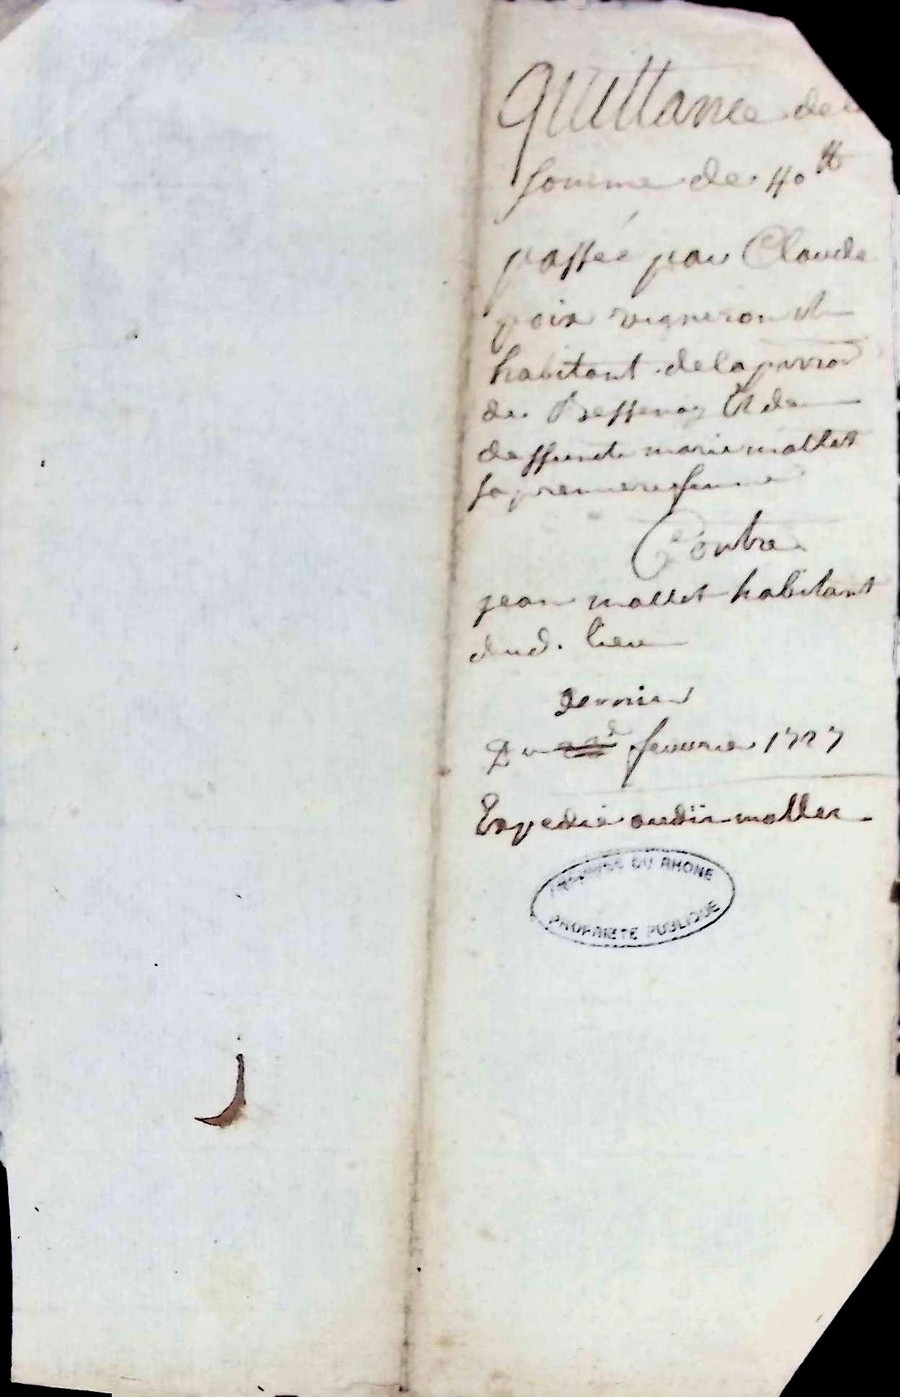 Quittance de la
somme de 40 ₶
passée par Claude
poix vigneron et
habitant de la parroi
de Bessenay et de
deffunte marie mollet
sa premiere femme
Contre
jean mollet habitant
dud. lieu
dernier
Du fevrier 1727
Expedié audit mollet
ARCHIVES DU RHONE
PROPRIETE PUBLIQUE